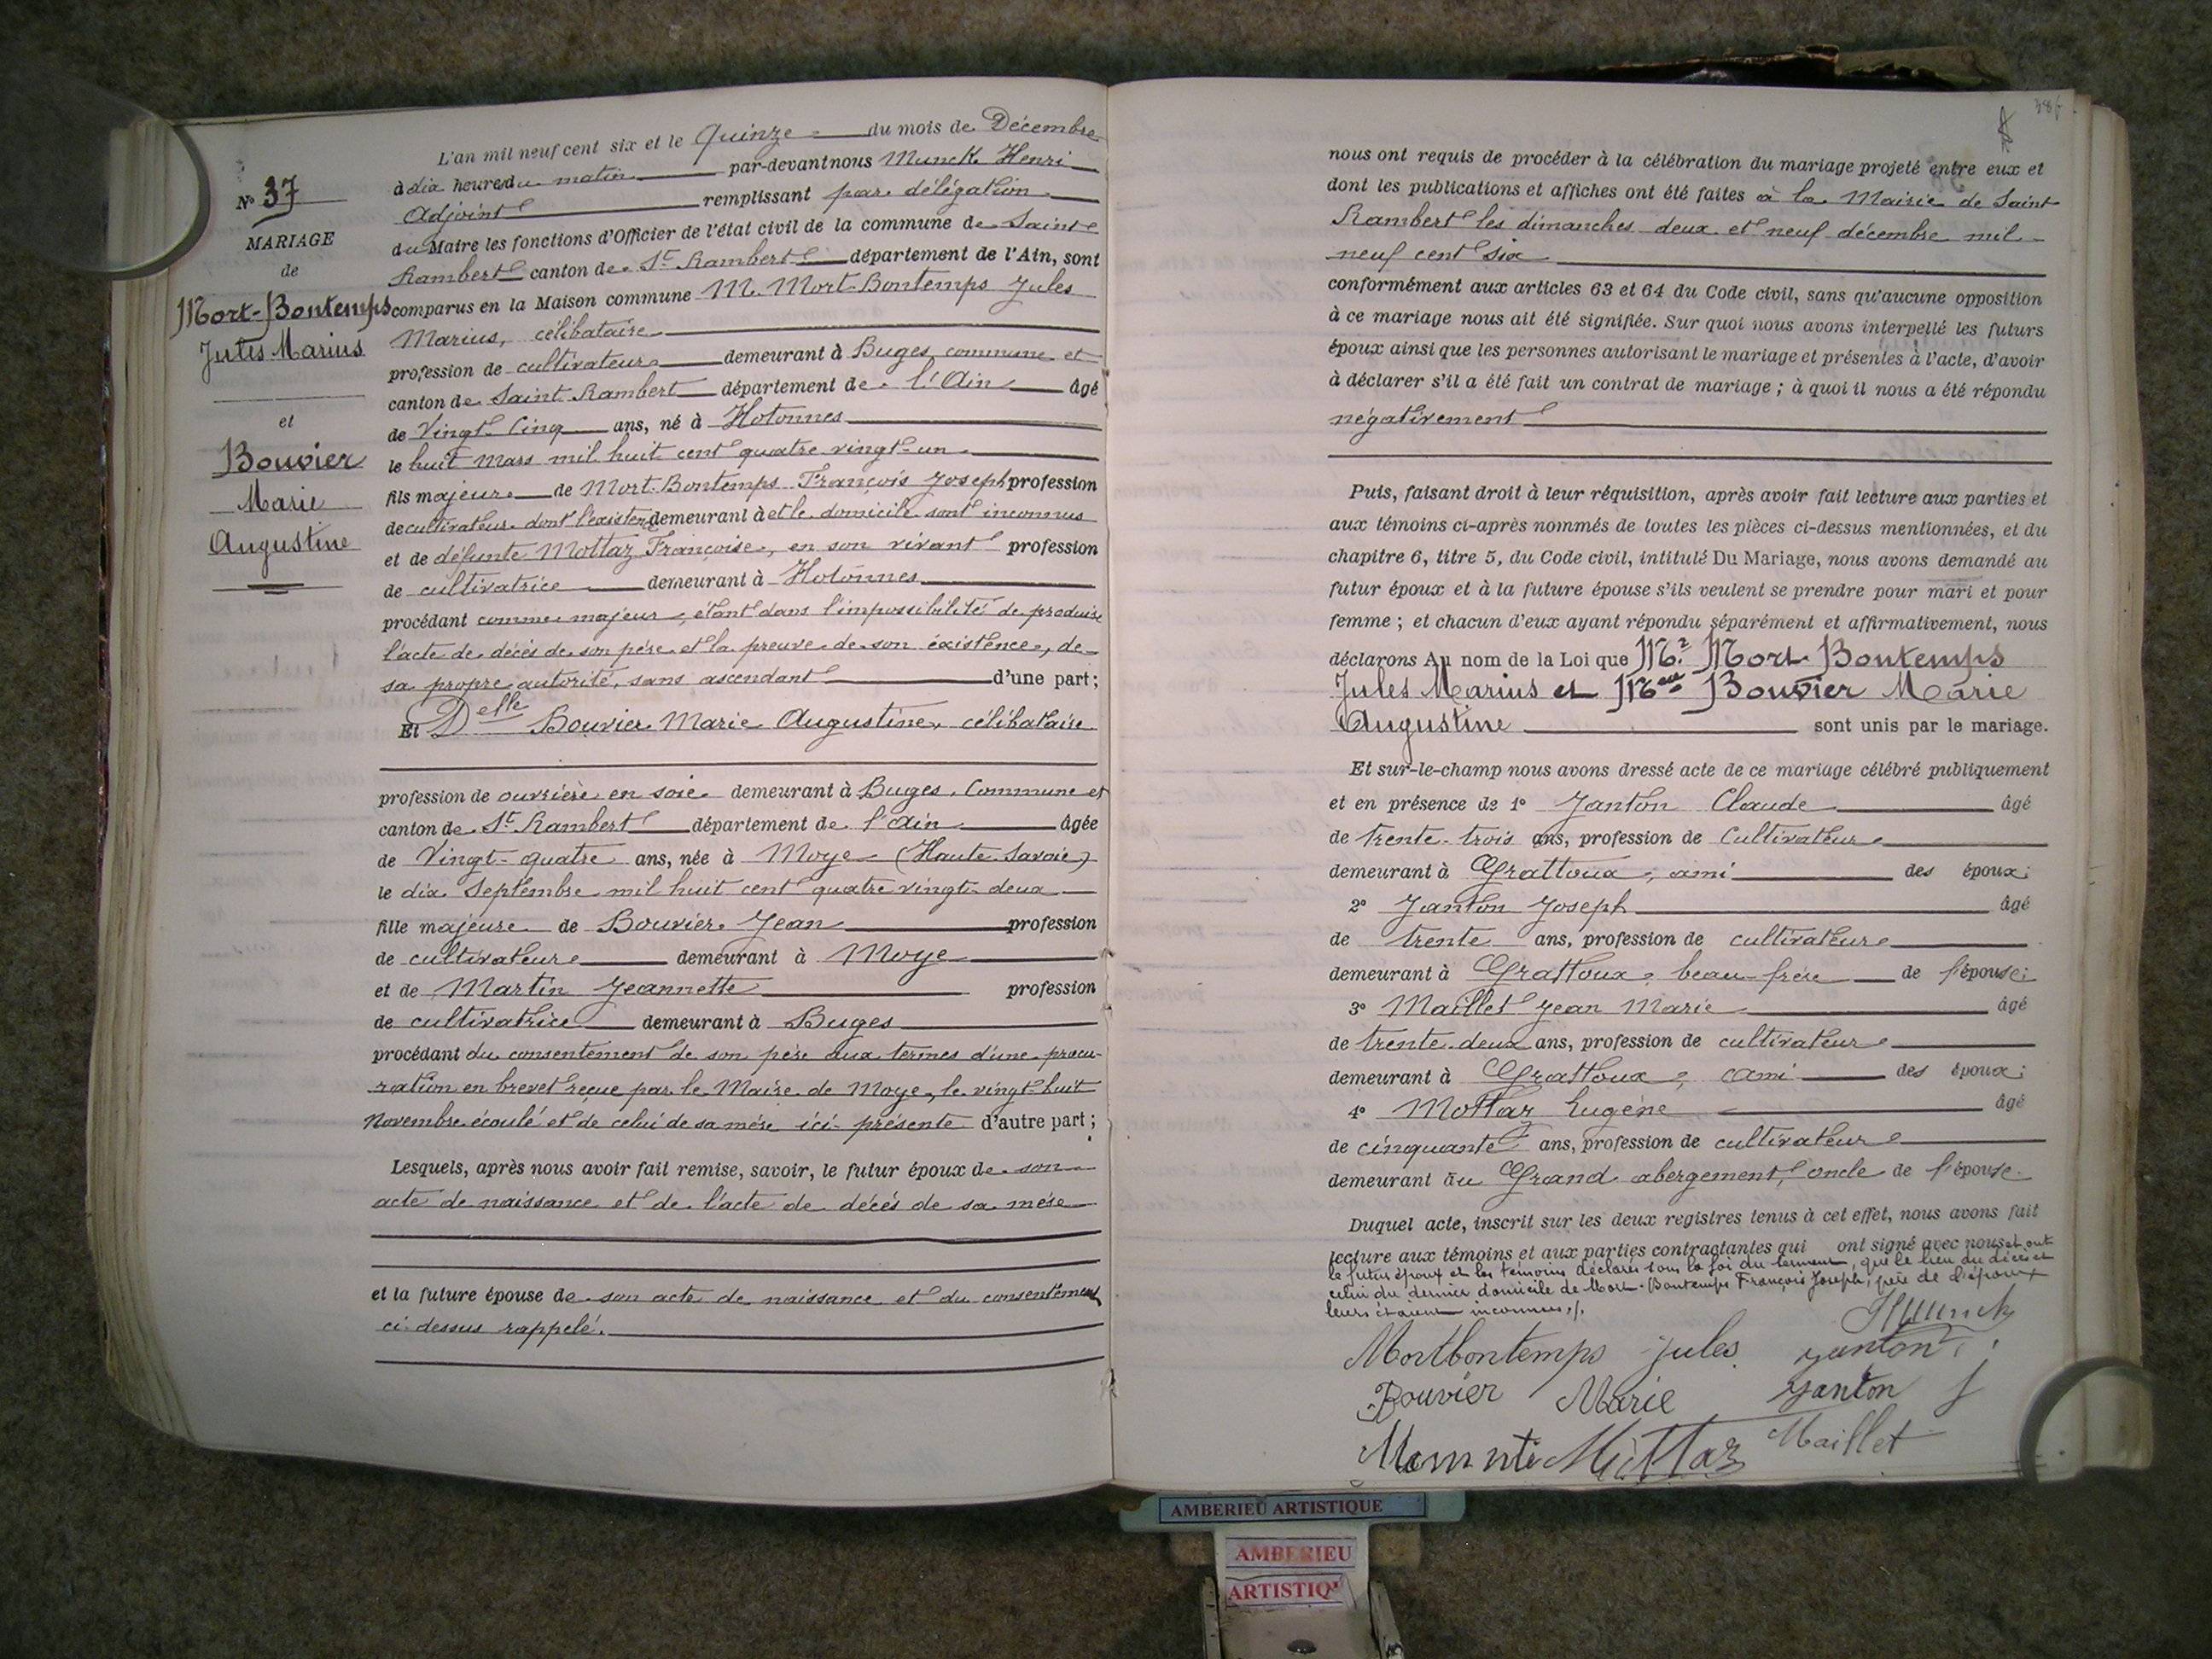 N° 37
MARIAGE
de
Mort-Bontemps
Jules Marius
et
Bouvier
Marie
Augustine
L'an mil neuf cent six et le Quinze du mois de Décembre
à dix heures du matin par-devant nous Munck Henri
Adjoint remplissant par délégation
du Maire les fonctions d'Officier de l'état civil de la commune de Saint
Rambert canton de St Rambert département de l'Ain, sont
comparus en la Maison commune M. Mort-Bontemps Jules
Marius, célibataire
profession de cultivateur demeurant à Buges, commune et
canton de Saint Rambert département de l'Ain âgé
de Vingt-Cinq ans, né à Hotonnes
le huit mars mil huit cent quatre vingt-un
fils majeur de Mort-Bontemps François Joseph profession
de cultivateur dont l'existence demeurant à et le domicile sont inconnus
et de défunte Mottaz Françoise, en son vivant profession
de cultivatrice demeurant à Hotonnes
procédant comme majeur, étant dans l'impossibilité de produire
l'acte de décès de son père et la preuve de son éxistence, de
sa propre autorité, sans ascendant d'une part;
Et Delle Bouvier Marie Augustine, célibataire
profession de ouvrière en soie demeurant à Buges, Commune et
canton de St Rambert département de l'Ain âgée
de Vingt-quatre ans, née à Moye (Haute Savoie)
le dix Septembre mil huit cent quatre vingt-deux
fille majeure de Bouvier Jean profession
de cultivateur demeurant à Moye
et de Martin Jeannette profession
de cultivatrice demeurant à Buges
procédant du consentement de son père aux termes d'une procu-
ration en brevet reçue par le Maire de Moye, le vingt-huit
Novembre écoulé et de celui de sa mère ici présente d'autre part;
Lesquels, après nous avoir fait remise, savoir, le futur époux de son
acte de naissance et de l'acte de décès de sa mère
et la future épouse de son acte de naissance et du consentement
ci-dessus rappelé.
386
nous ont requis de procéder à la célébration du mariage projeté entre eux et
dont les publications et affiches ont été faites à la Mairie de Saint
Rambert les dimanches deux et neuf décembre mil
neuf cent six
conformément aux articles 63 et 64 du Code civil, sans qu'aucune opposition
à ce mariage nous ait été signifiée. Sur quoi nous avons interpellé les futurs
époux ainsi que les personnes autorisant le mariage et présentes à l'acte, d'avoir
à déclarer s'il a été fait un contrat de mariage; à quoi il nous a été répondu
négativement
Puis, faisant droit à leur réquisition, après avoir fait lecture aux parties et
aux témoins ci-après nommés de toutes les pièces ci-dessus mentionnées, et du
chapitre 6, titre 5, du Code civil, intitulé Du Mariage, nous avons demandé au
futur époux et à la future épouse s'ils veulent se prendre pour mari et pour
femme; et chacun d'eux ayant répondu séparément et affirmativement, nous
déclarons Au nom de la Loi que Mr Mort-Bontemps
Jules Marius et Melle Bouvier Marie
Augustine sont unis par le mariage.
Et sur-le-champ nous avons dressé acte de ce mariage célébré publiquement
et en présence de 1° Janton Claude âgé
de trente-trois ans, profession de Cultivateur
demeurant à Grattoux, ami des époux;
2° Janton Joseph âgé
de trente ans, profession de cultivateur
demeurant à Grattoux, beau-frère de l'épouse;
3° Maillet Jean Marie âgé
de trente-deux ans, profession de cultivateur
demeurant à Grattoux, ami des époux;
4° Mottaz Eugène âgé
de cinquante ans, profession de cultivateur
demeurant au Grand abergement, oncle de l'épouse
Duquel acte, inscrit sur les deux registres tenus à cet effet, nous avons fait
lecture aux témoins et aux parties contractantes qui ont signé avec nous et ont
le futur époux et les témoins déclaré sous la foi du serment, que le lieu du décès et
celui du dernier domicile de Mort-Bontemps François Joseph, père de l'époux
leurs étaient inconnus./.
HMunck
Mortbontemps Jules Janton
Bouvier Marie Janton J
Mottaz Maillet
AMBERIEU ARTISTIQUE
AMBERIEU
ARTISTIQ